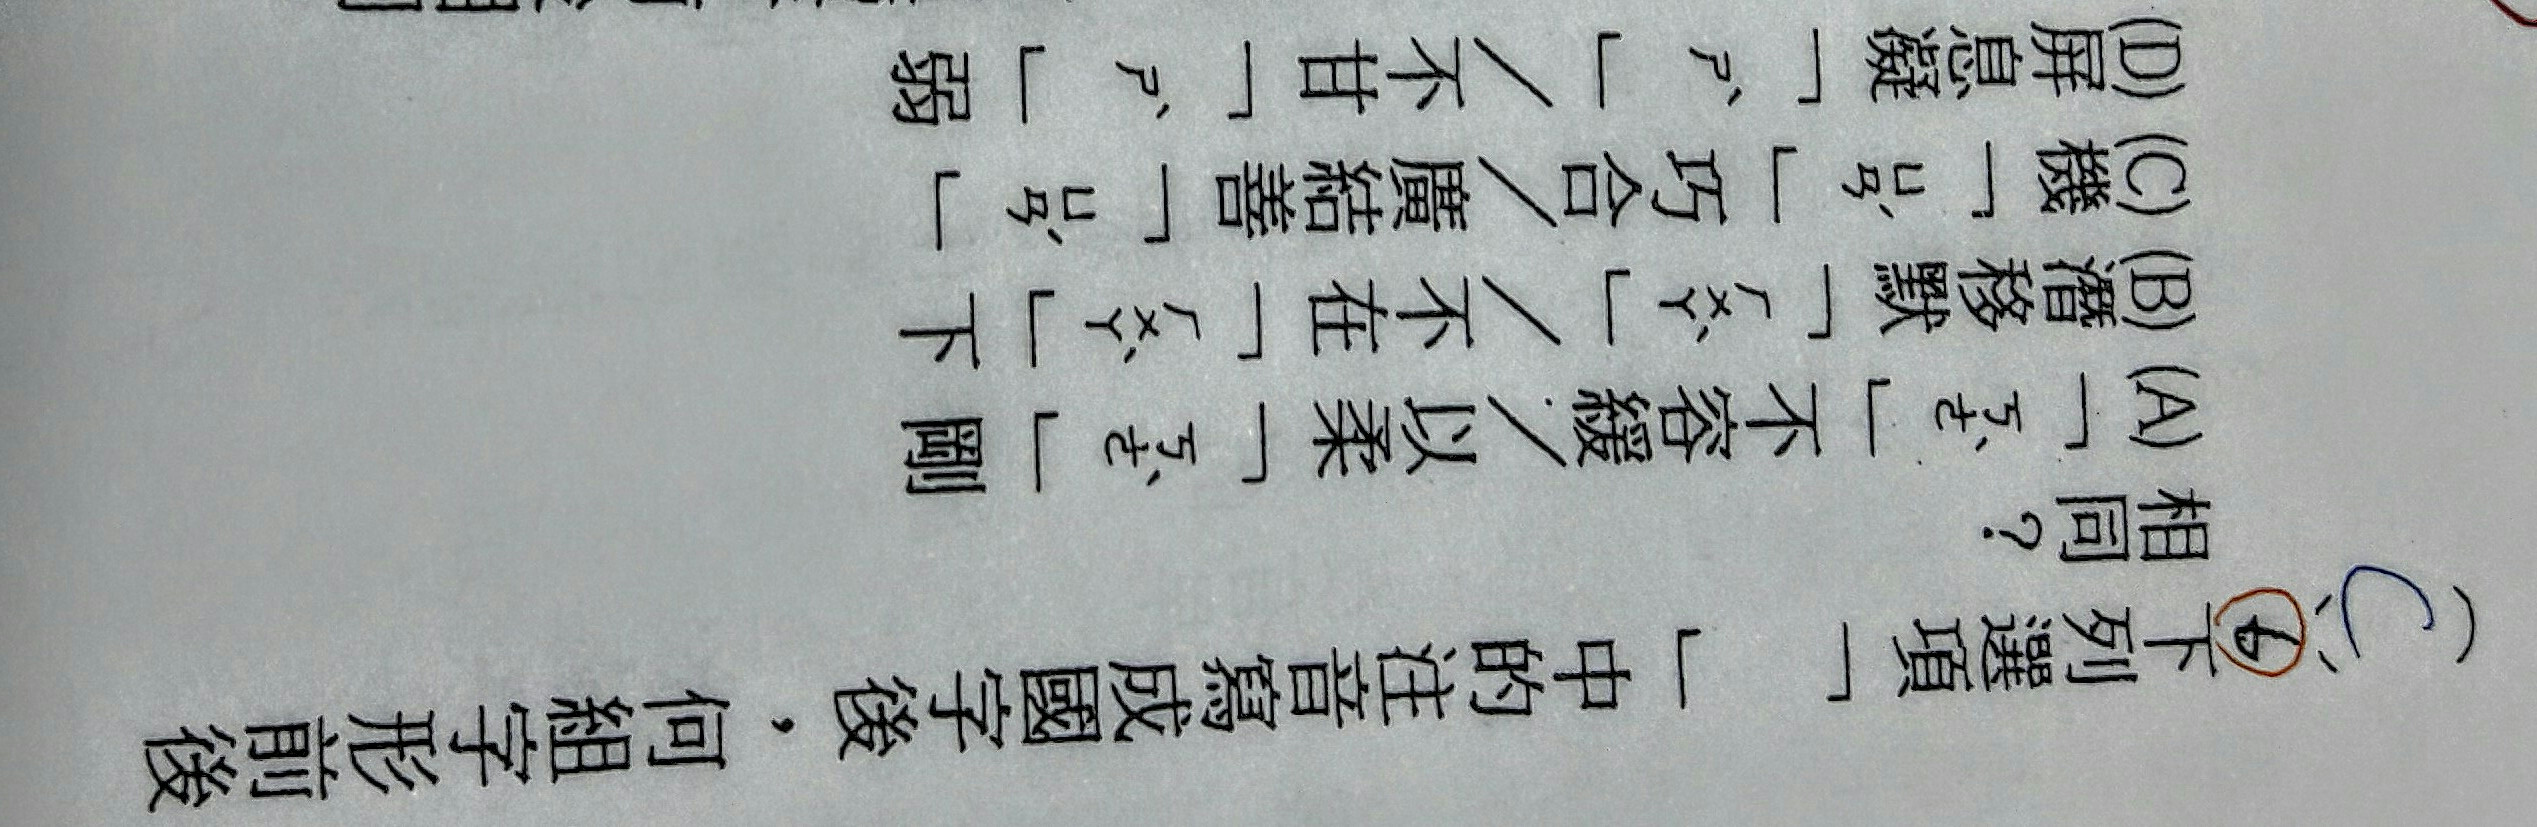 ( C )6、下列選項「　」中的注音寫成國字後，何組字形前後
相同？
(A)「ㄎㄜˋ」不容緩／以柔「ㄎㄜˋ」剛
(B)潛移默「ㄏㄨㄚˋ」／不在「ㄏㄨㄚˋ」下
(C)機「ㄩㄢˊ」巧合／廣結善「ㄩㄢˊ」
(D)屏息凝「ㄕˊ」／不甘「ㄕˋ」弱